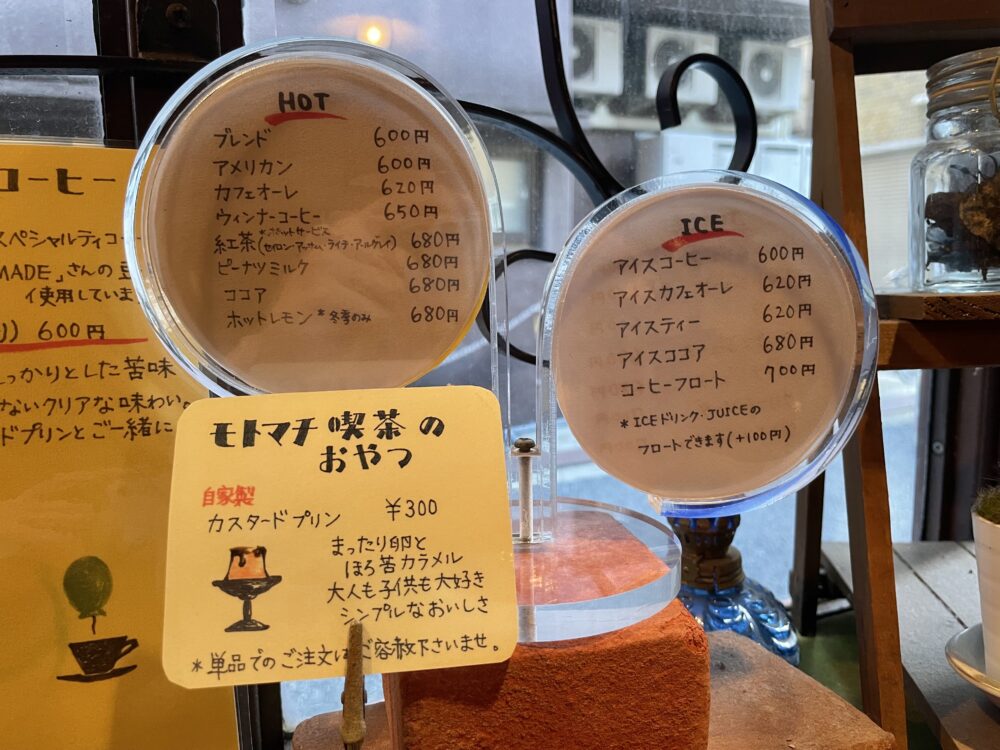 コーヒー
スペシャルティコー
MADE」さんの豆
イ使用していま
り) 600円
しっかりとした苦味
ないクリアな味わい。
ドプリンとご一緒に
HOT
ブレンド 600円
アメリカン 600円
カフェオーレ 620円
ウィンナーコーヒー 650円
*ポットサービス
紅茶(セイロン・アッサム・ライチ・アールグレイ) 680円
ピーナツミルク 680円
ココア 680円
ホットレモン *冬季のみ 680円
ICE
アイスコーヒー 600円
アイスカフェオーレ 620円
アイスティー 620円
アイスココア 680円
コーヒーフロート 700円
*ICEドリンク・JUICEの
フロートできます(+100円)
モトマチ喫茶の
おやつ
自家製
カスタードプリン ¥300
まったり卵と
ほろ苦カラメル
大人も子供も大好き
シンプルなおいしさ
*単品でのご注文はご容赦下さいませ。